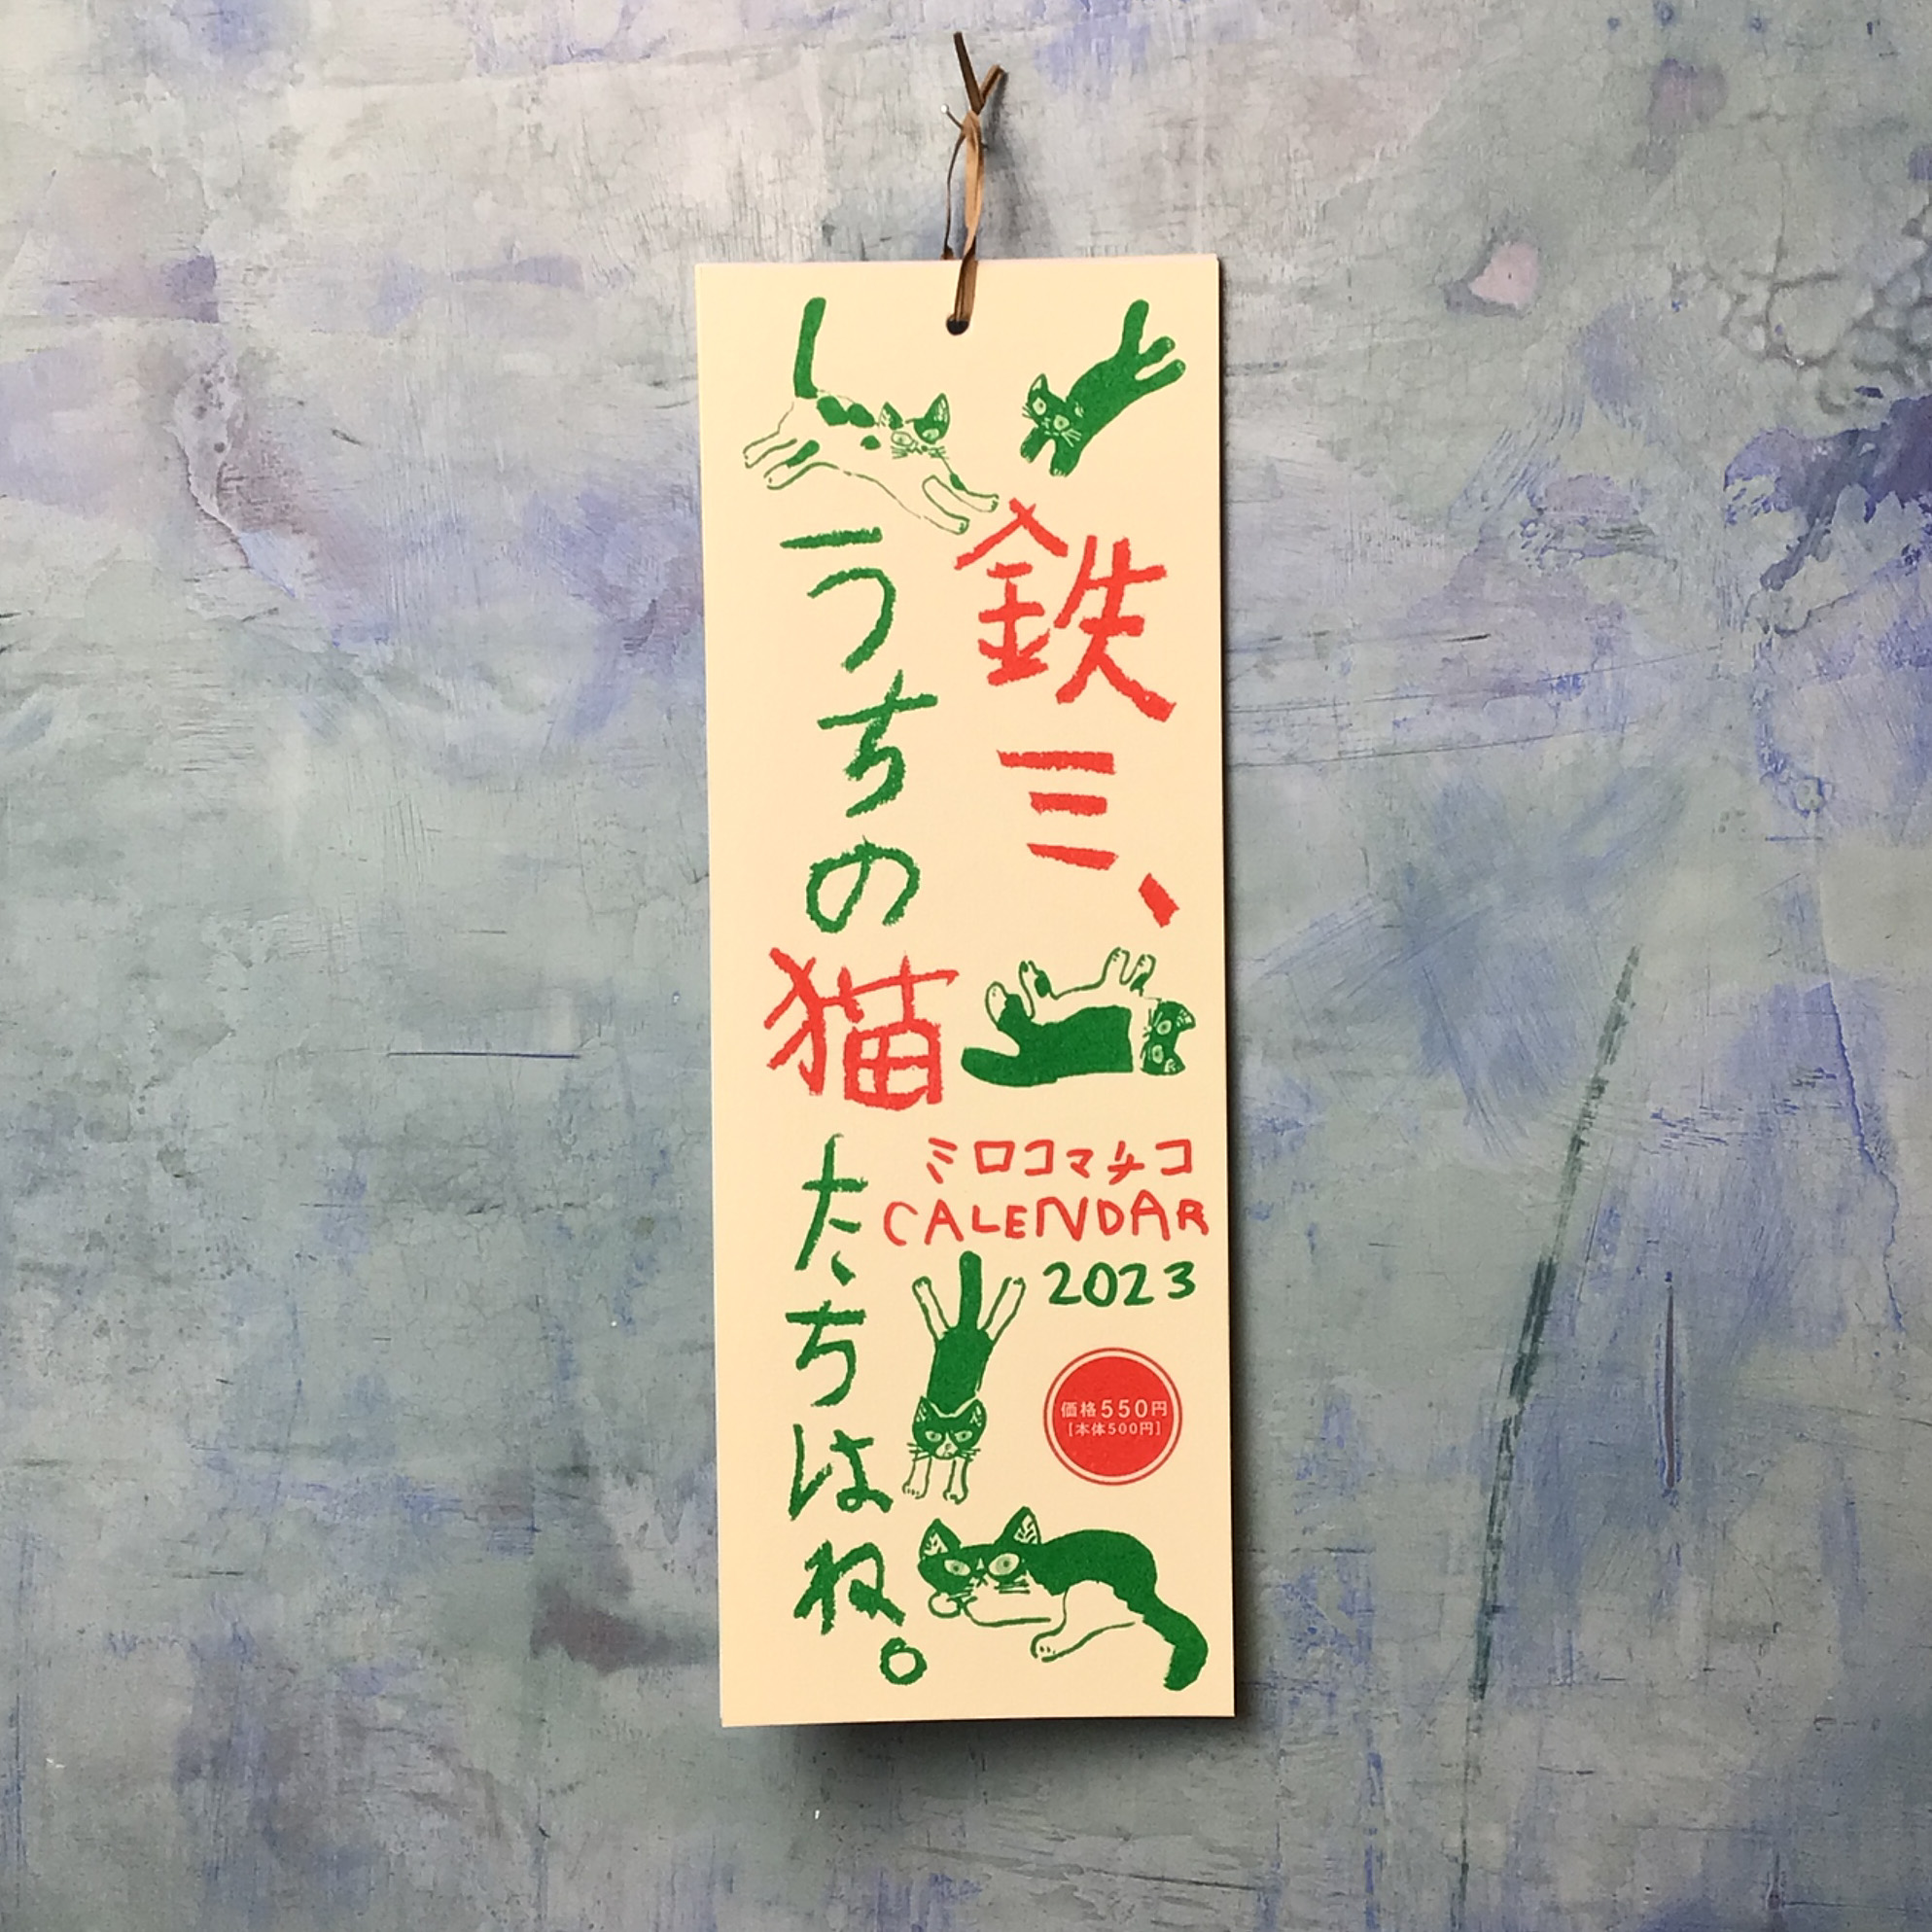 鉄三、
うちの猫たちはね。
ミロコマチコ
CALENDAR
2023
価格550円
[本体500円]